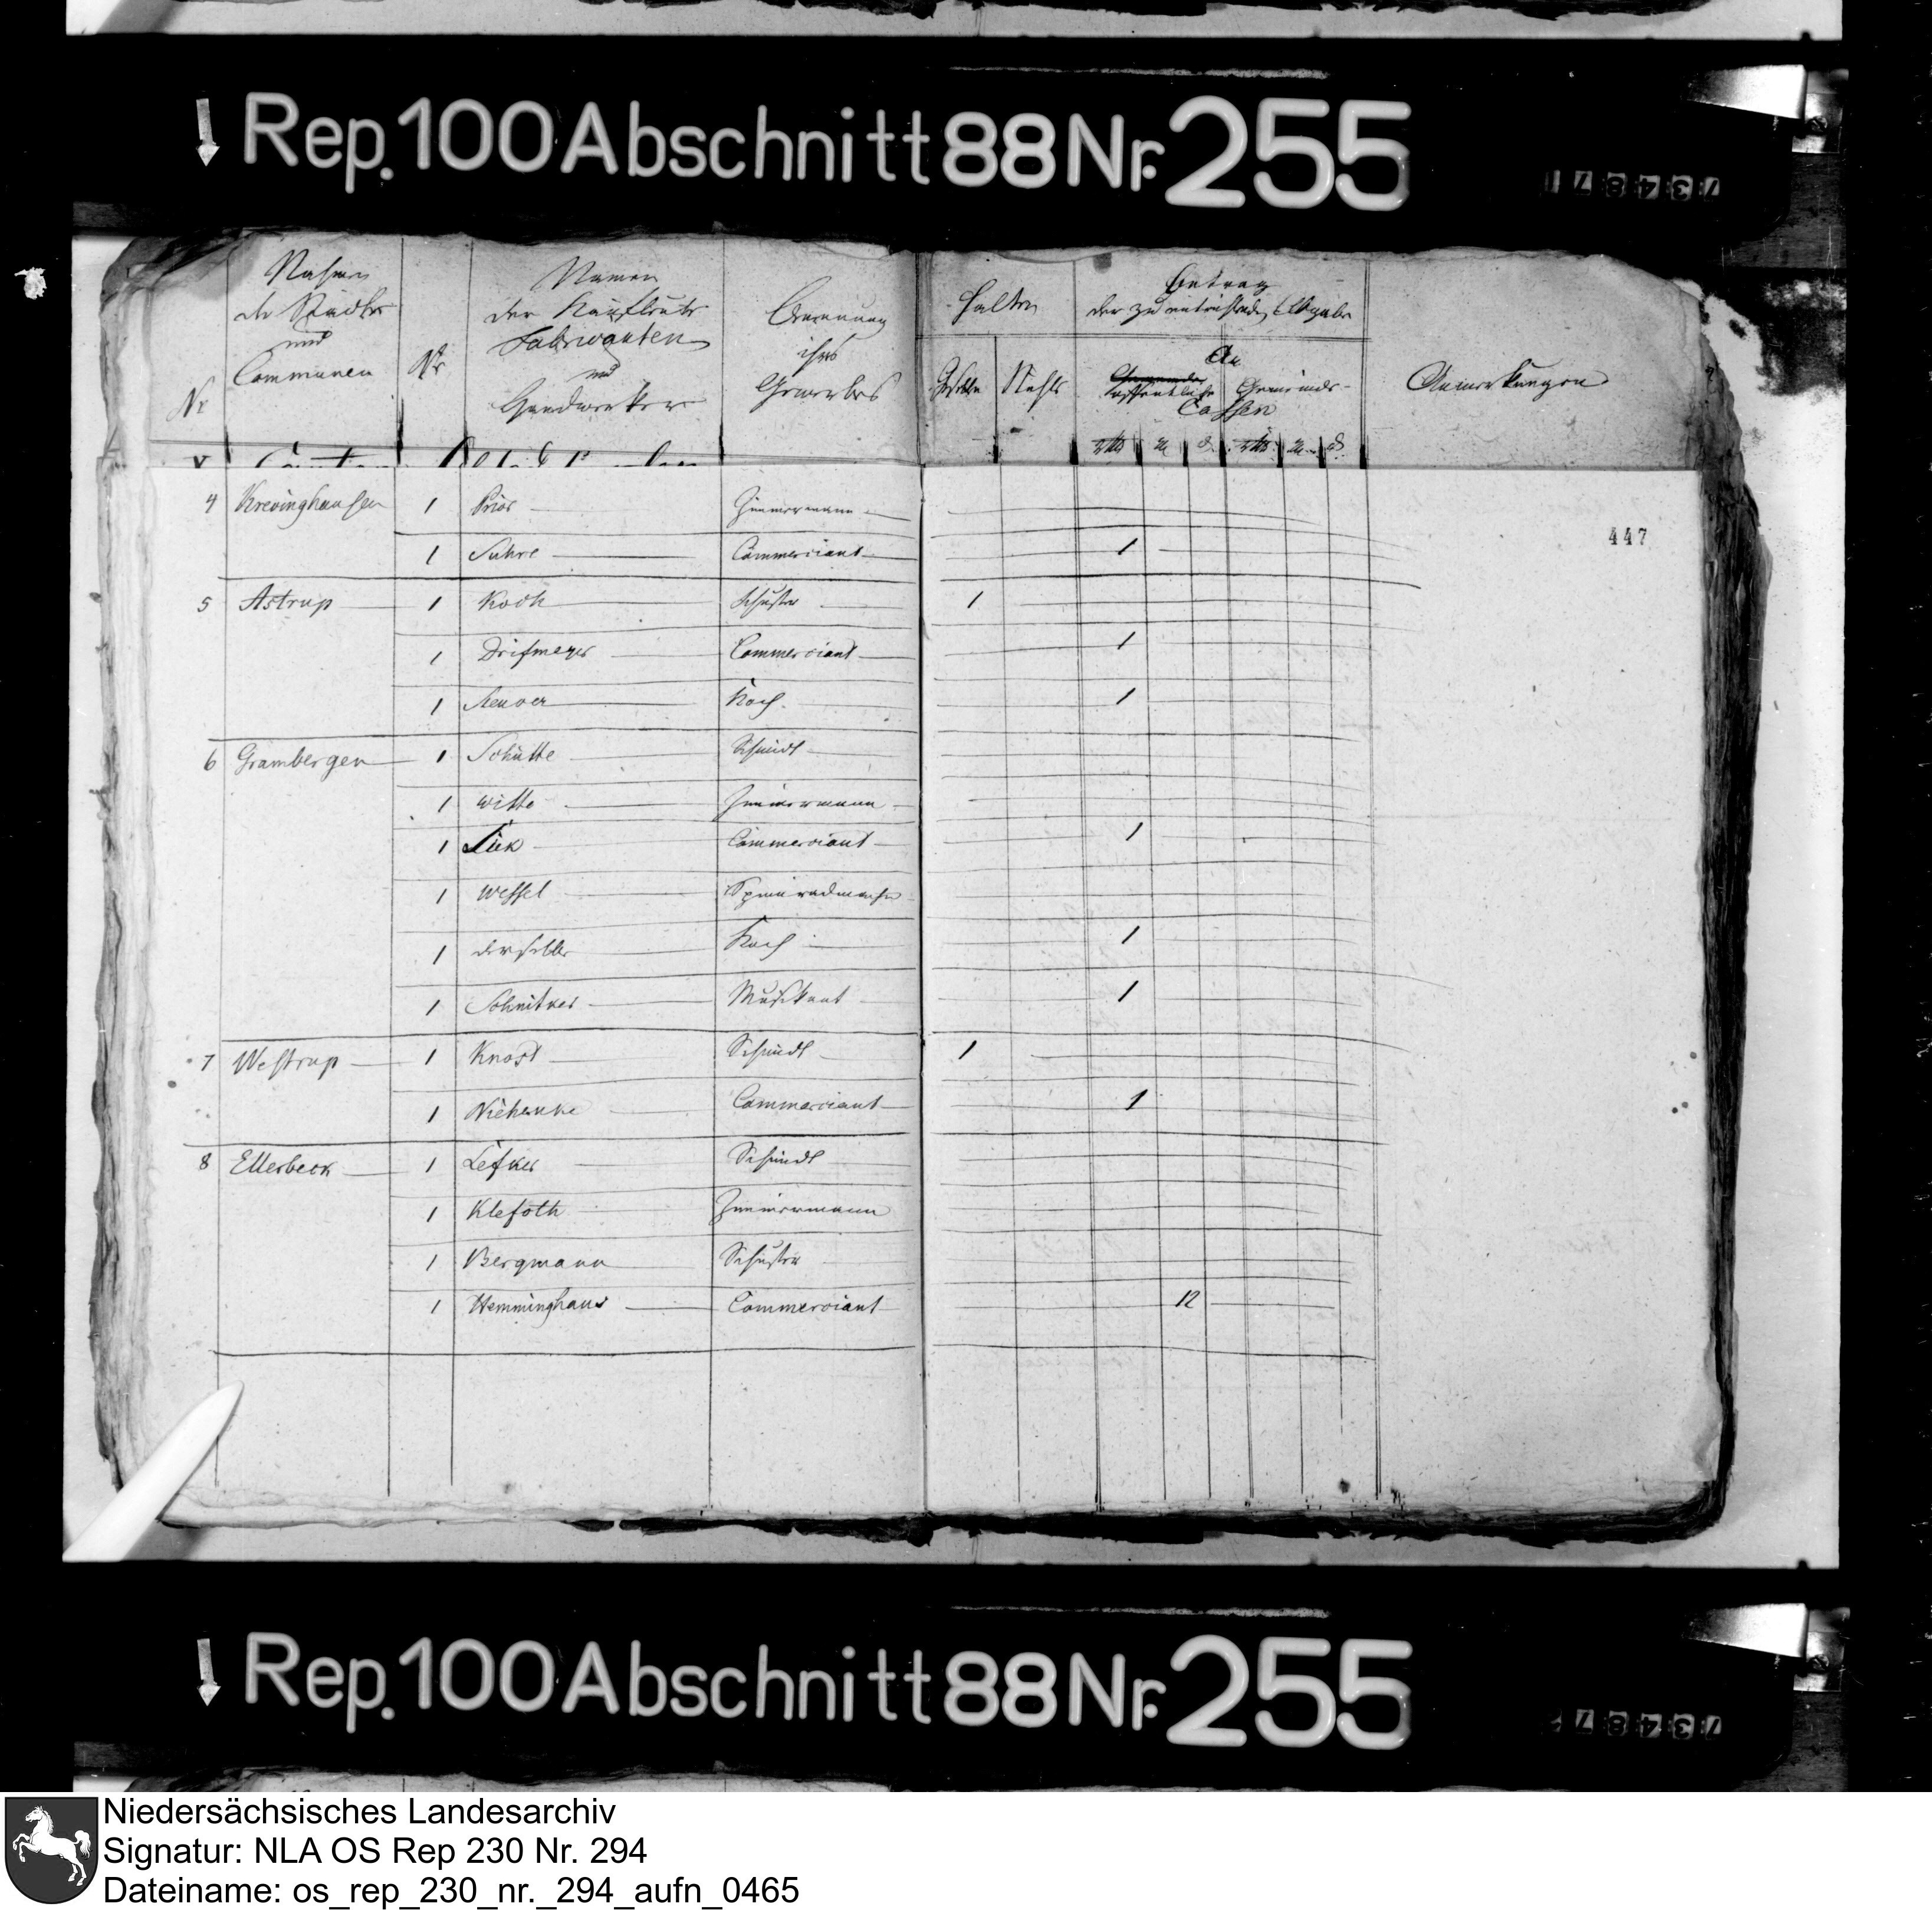 Rep. 100 Abschnitt 88 Nr. 255
Nr
Nahmen
der Städte
und
Communen
Nr
Namen
der Kaufleute
Fabricanten
und
Handwerker
Benennung
ihres
Gewerbes
Halten
Gesellen
Betrag
der zu entrichtenden Abgabe
An
öffentliche Gemeinde-
Cassen
Anmerkungen
447
4 Krevinghausen 1 Prior Zimmermann
1 Suhre Commerciant 1
5 Astrup 1 Koch Schuster 1
1 Dreismeyer Commerciant 1
1 Koch 1
6 Grambergen 1 Schütte Schmidt
1 Witte Zimmermann
1 Lük Commerciant 1
1 Wessel Spinradmacher
1 derselbe Koch 1
1 Schnitker Musikant 1
7 Westrup 1 Knost Schmidt 1
1 Niehenke Commerciant 1
8 Ellerbeck 1 Schmidt
1 Klefoth Zimmermann
1 Bergmann Schuster
1 Hemminghaus Commerciant 12
Rep. 100 Abschnitt 88 Nr. 255
Niedersächsisches Landesarchiv
Signatur: NLA OS Rep 230 Nr. 294
Dateiname: os_rep_230_nr._294_aufn_0465